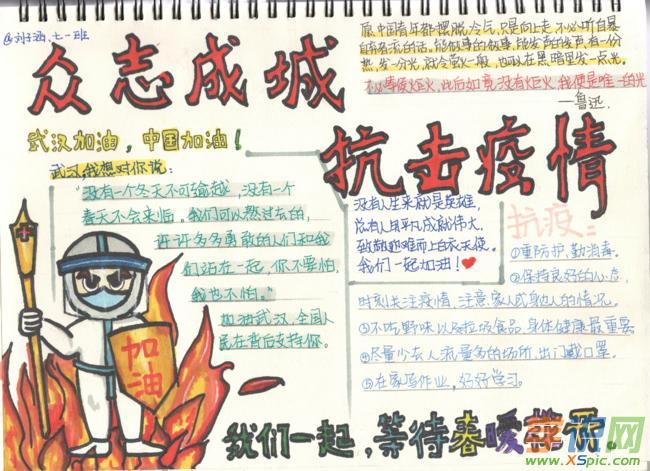 @刘子涵,七一班
愿中国青年都摆脱冷气,只是向上走,不必听自暴
自弃者流的话。能做事的做事,能发声的发声,有一份
热,发一分光,就令萤火一般,也可以在黑暗里发一点光。
不必等候炬火,此后如竟没有炬火,我便是唯一的光
—鲁迅.
众志成城
武汉加油,中国加油!
抗击疫情
武汉,我想对你说:
"没有一个冬天不可逾越,没有一个
春天不会来临。我们可以熬过去的,
许许多多勇敢的人们和我
们站在一起,你不要怕,
我也不怕。"
加油武汉,全国人
民在背后支持你。
没有人生来就是英雄,
总有人用平凡成就伟大,
致敬迎难而上白衣天使。
我们一起加油!
抗疫:
①重防护,勤消毒。
②保持良好的心态,
时刻关注疫情,注意家人或身边人的情况。
③不吃野味以及垃圾食品,身体健康最重要
④尽量少去人流量多的场所,出门戴口罩
⑤在家写作业,好好学习。
加
油
我们一起,等待春暖花开。
www.XSpic.com